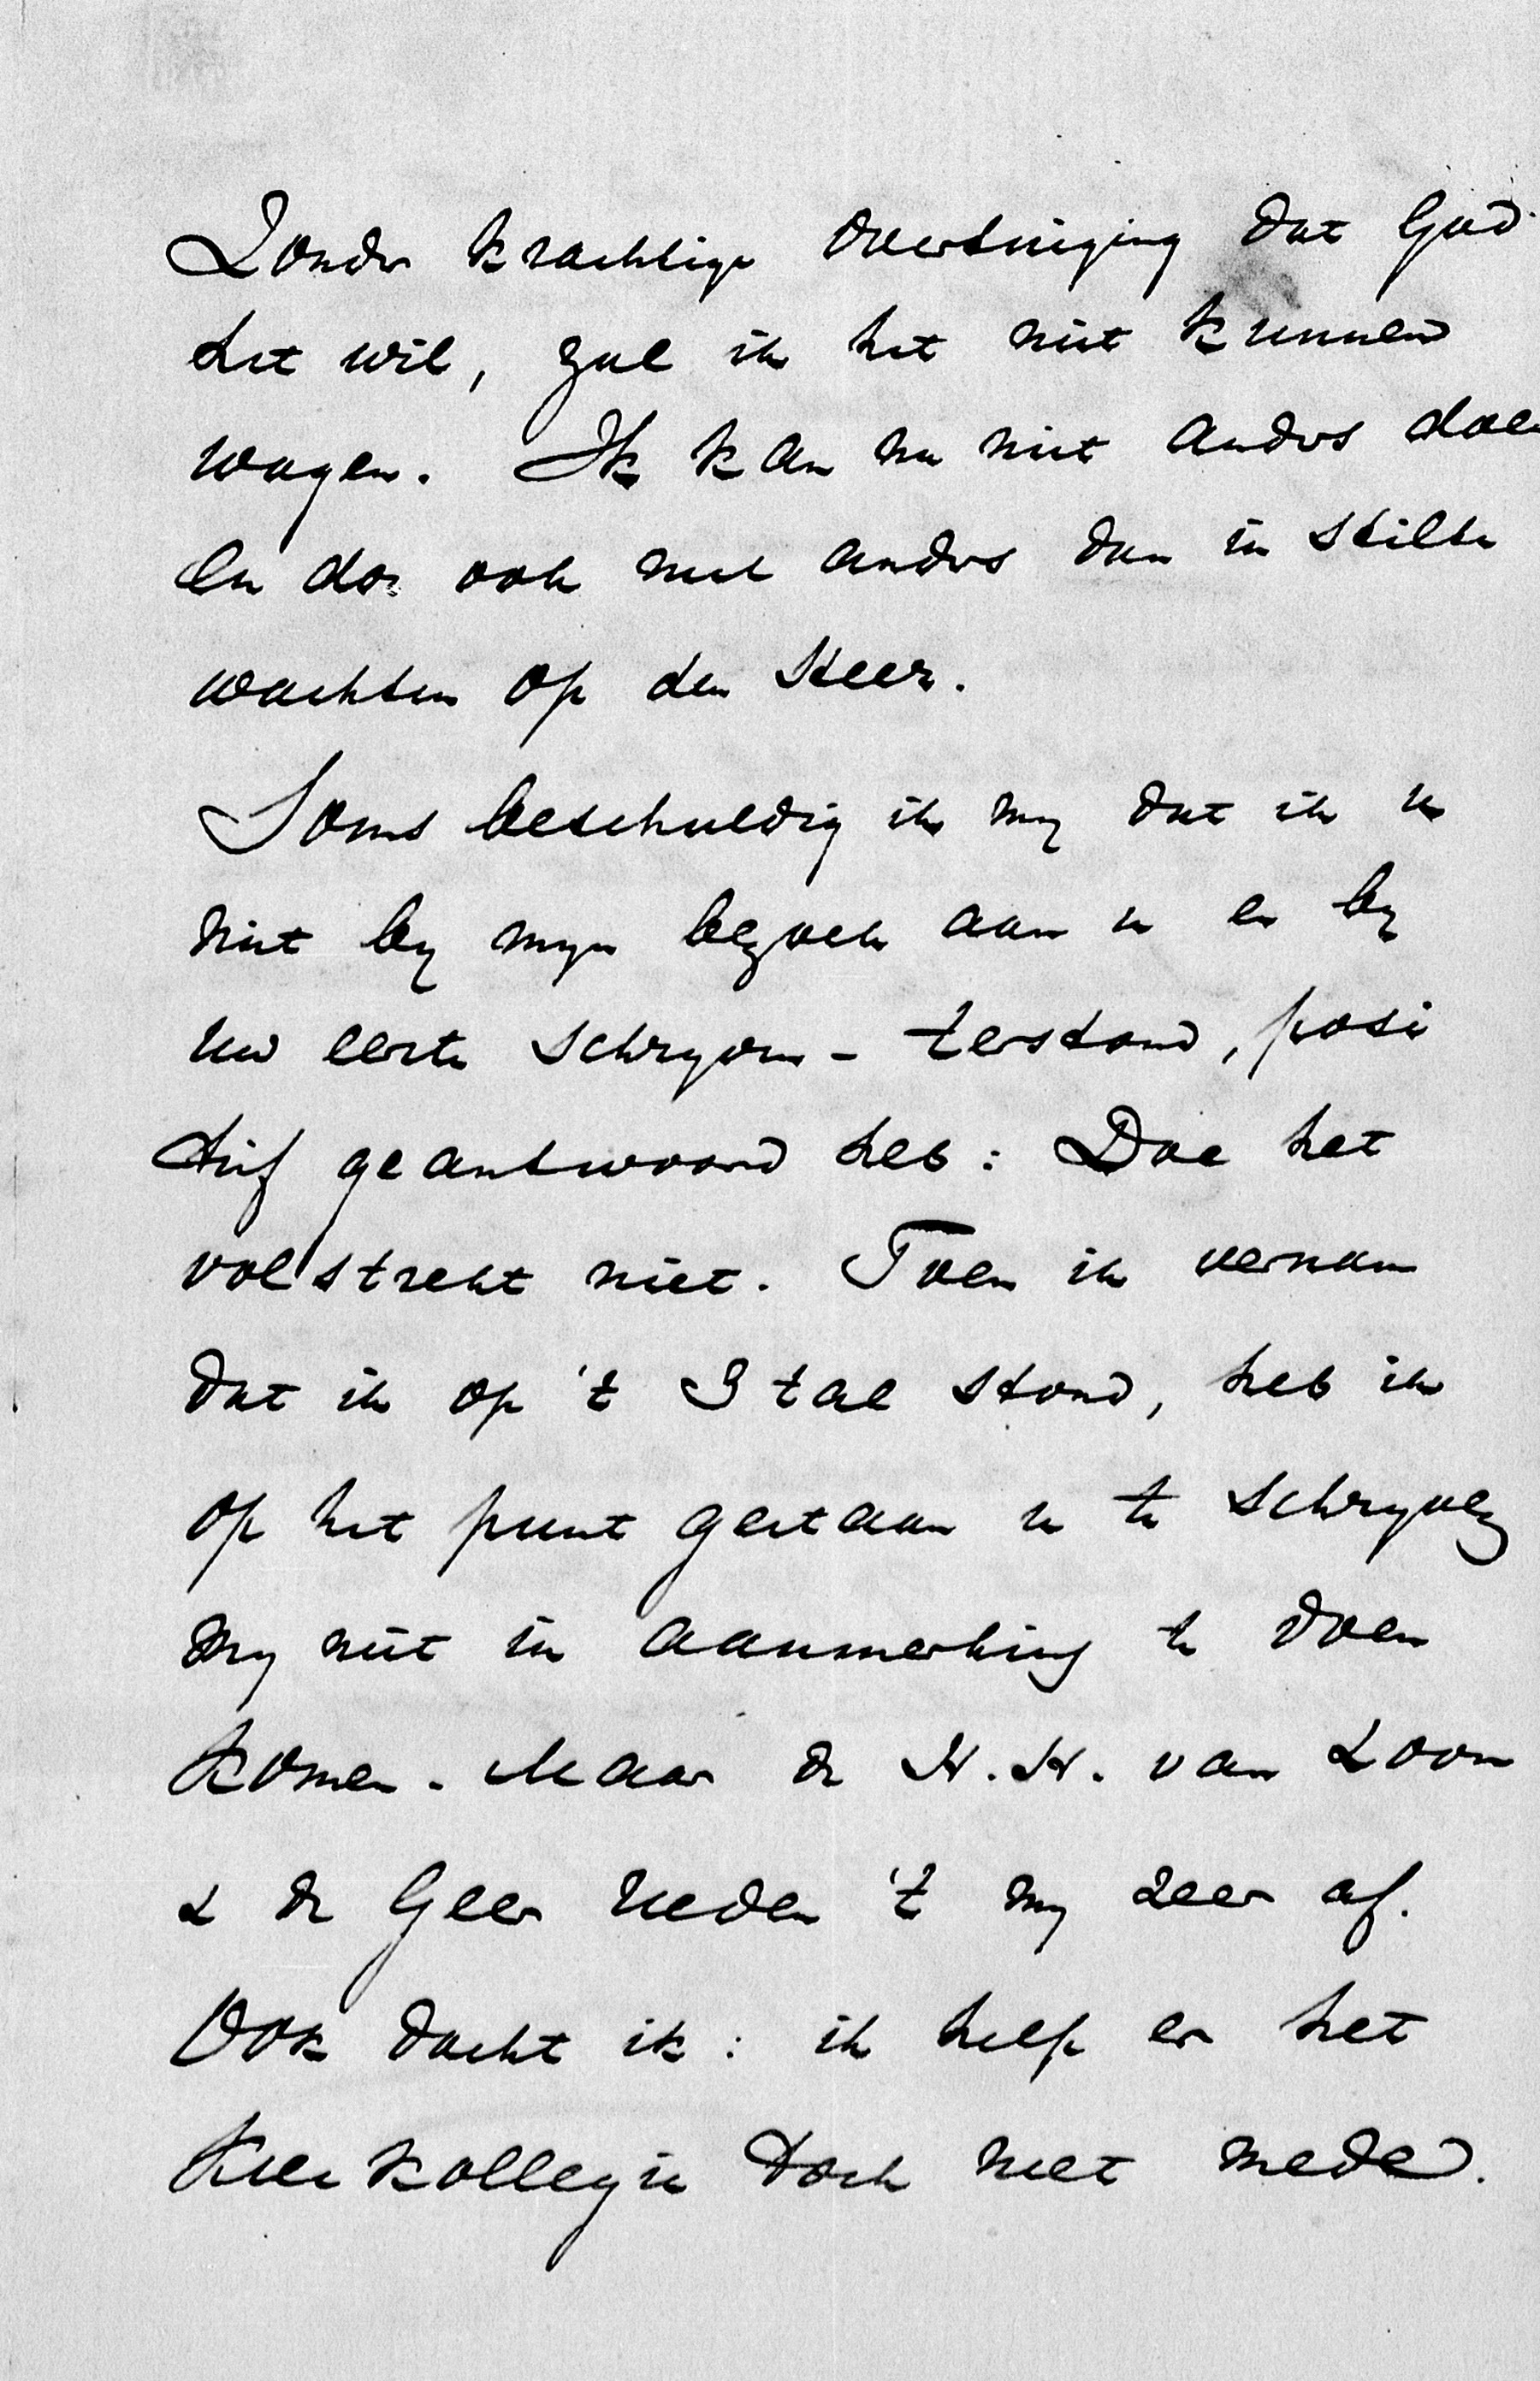 Zonder krachtige overtuiging dat God
het wil, zal ik het niet kunnen
wagen. Ik kan nu niet anders doen
en doe ook niet anders dan in stilte
wachten op den Heer.
Soms beschuldig ik my dat ik u
niet by myn bezoek aan u en by
uw eerste schryven - terstond, posi
tief geantwoord heb: Doe het
volstrekt niet. Toen ik vernam
dat ik op 't 3 tal stond, heb ik
op het punt gestaan u te schryven
my niet in aanmerking te doen
komen. Maar de H.H. van Loon
& de Geer rieden 't my zeer af.
Ook dacht ik: ik help er het
Kieskollegie toch niet mede.